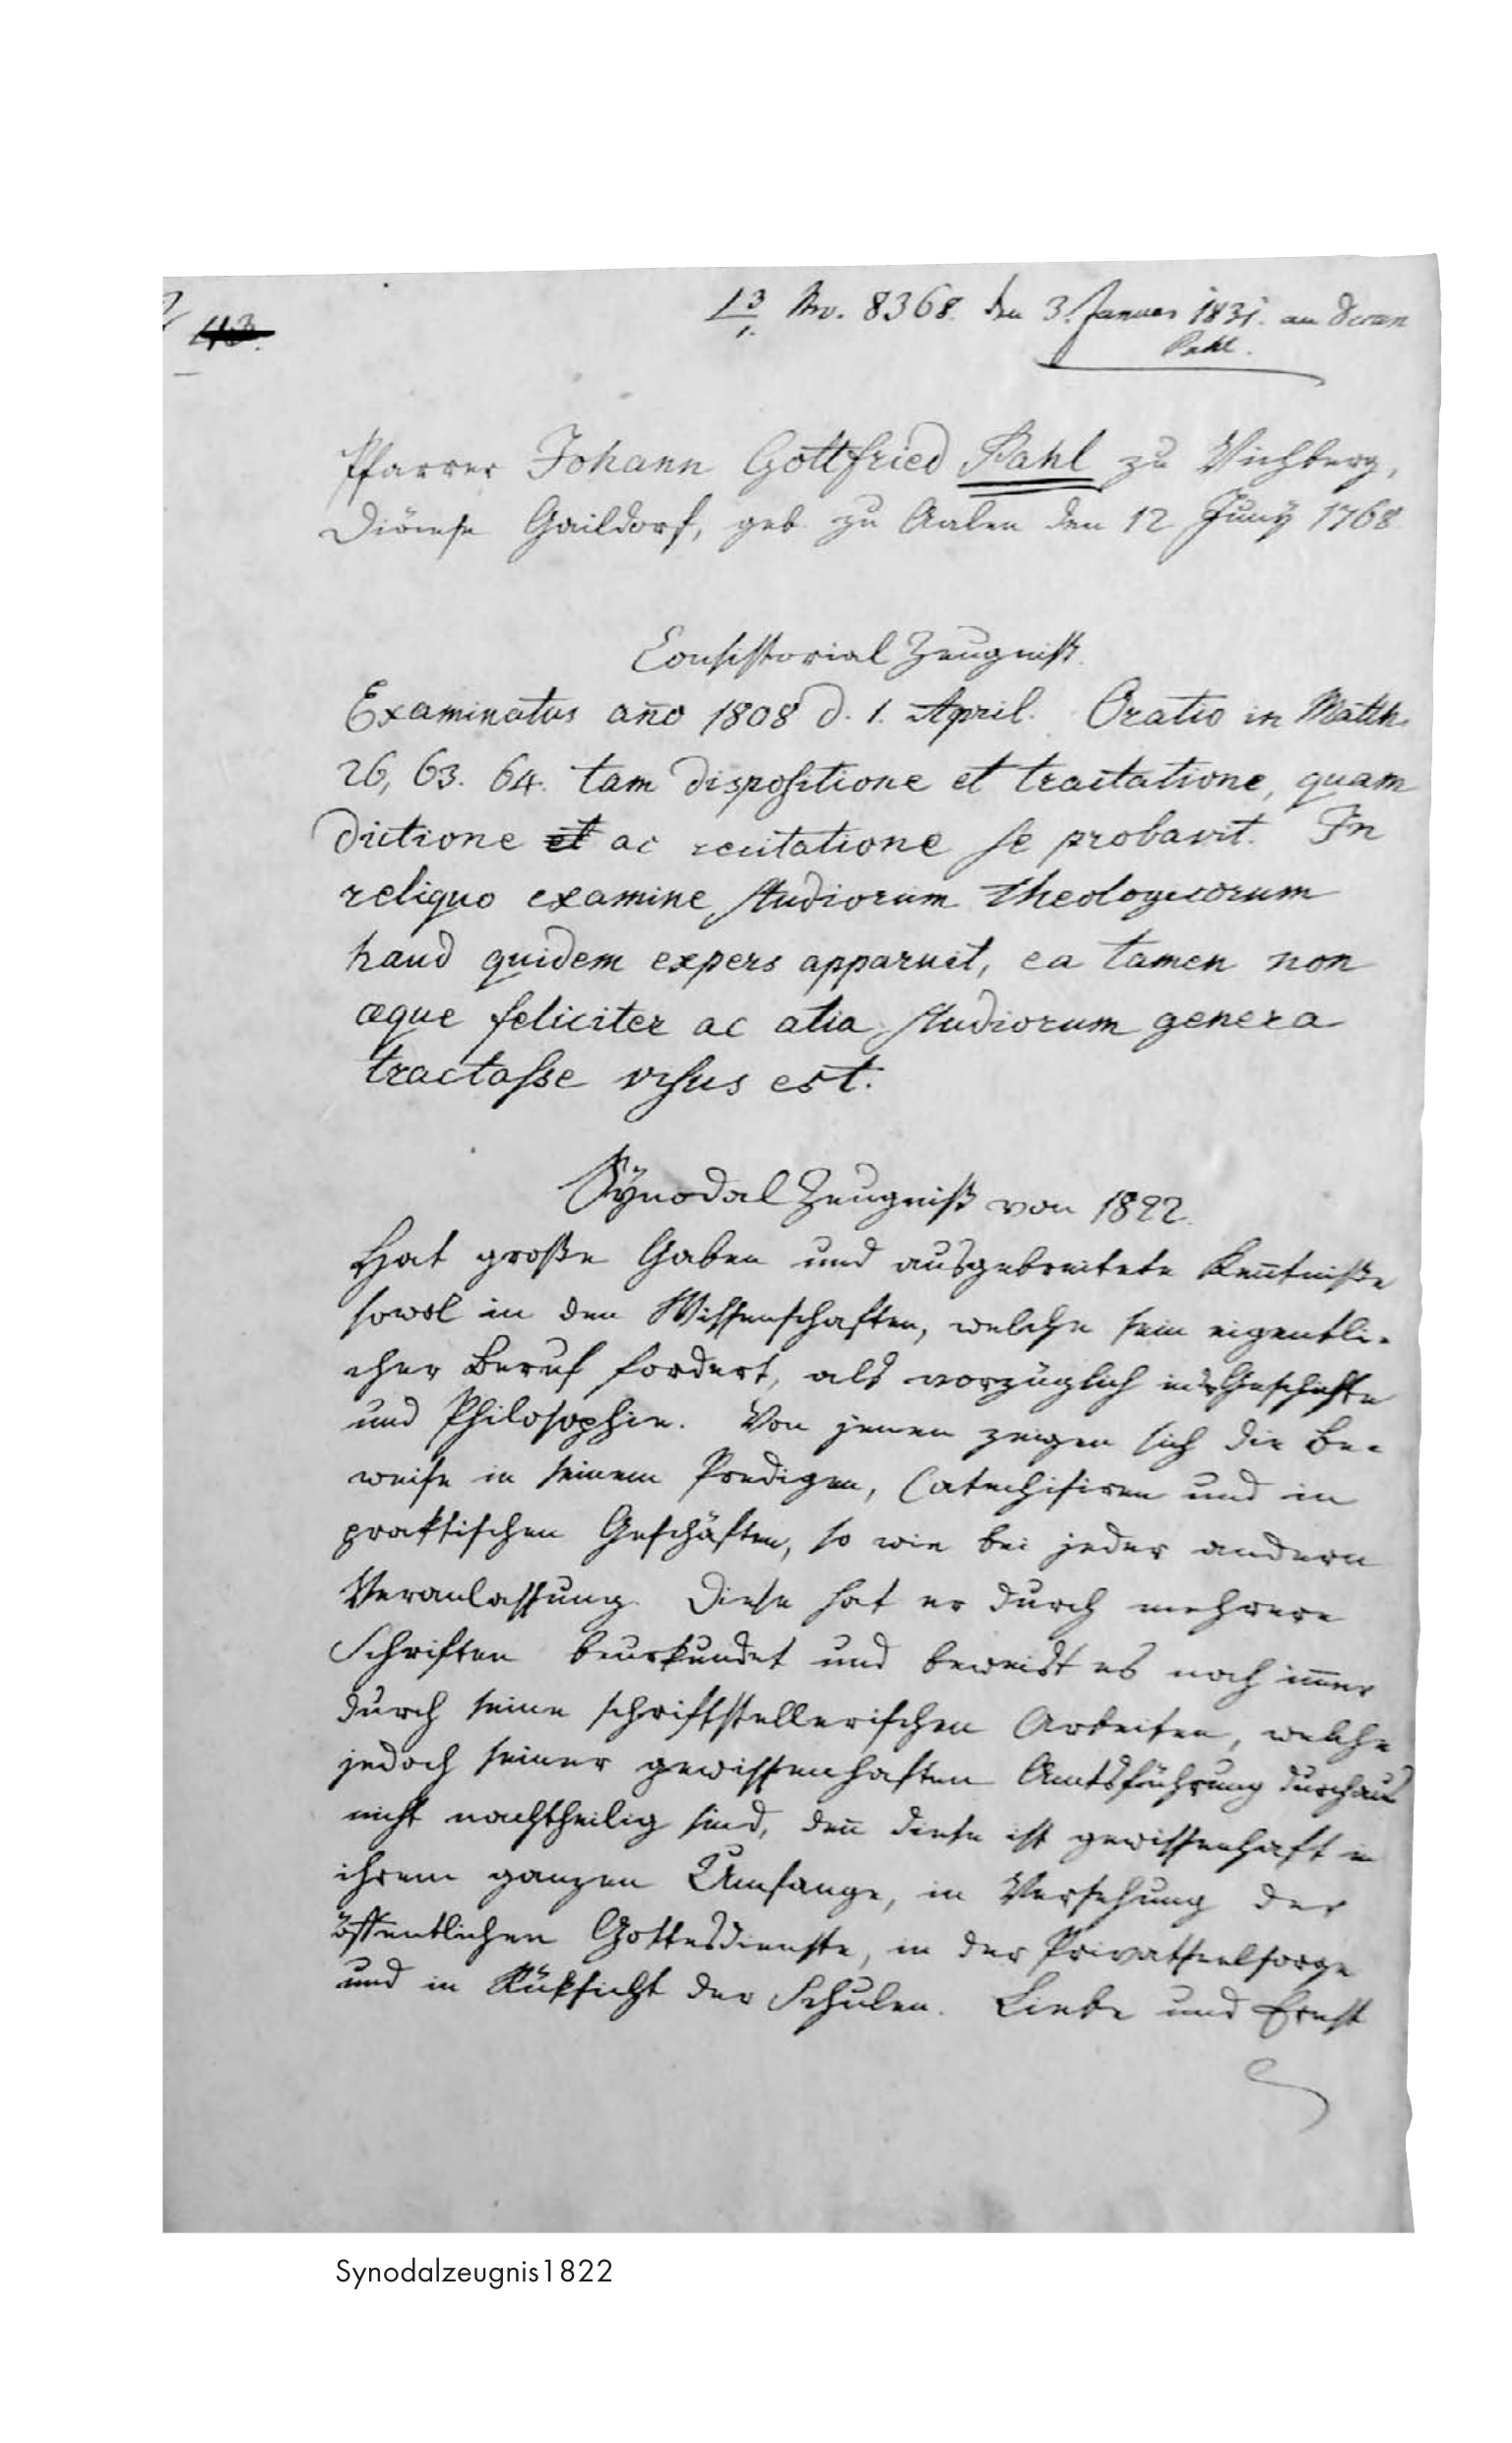 43.
13/1. Nro. 8368. den 3. Januar 1831. an Decan
Pahl.
Pfarrer Johann Gottfried Pahl zu Vichberg,
Diöcese Gaildorf, geb. zu Aalen den 12 Juny 1768
Consistorial Zeugniß.
Examinatus an̄o 1808 d. 1. April. Oratio in Matth.
26, 63. 64. tam dispositione et tractatione, quam
dictione et ac recitatione se probavit. In
reliquo examine studiorum theologicorum
haud quidem expers apparuit, ea tamen non
æque feliciter ac alia studiorum genera
tractasse visus est.
Synodal Zeugniß von 1822.
Hat große Gaben und ausgebreitete Ken̄tniße
sowol in den Wissenschaften, welche sein eigentli-
cher Beruf fordert, als vorzüglich in der Geschichte
und Philosophie. Von jenen zeigen sich die Be-
weise in seinem Predigen, Catechisiren und in
praktischen Geschäften, so wie bei jeder andern
Veranlassung. Diese hat er durch mehrere
Schriften beurkundet und beweist es noch im̄er
durch seine schriftstellerischen Arbeiten, welche
jedoch seiner gewissenhaften Amtsführung durchaus
nicht nachtheilig sind, den̄ diese ist gewissenhaft in
ihrem ganzen Umfange, in Versehung der
öffentlichen Gottesdienste, in der Privatseelsorge
und in Rüksicht der Schulen. Liebe und Ernst
Synodalzeugnis1822